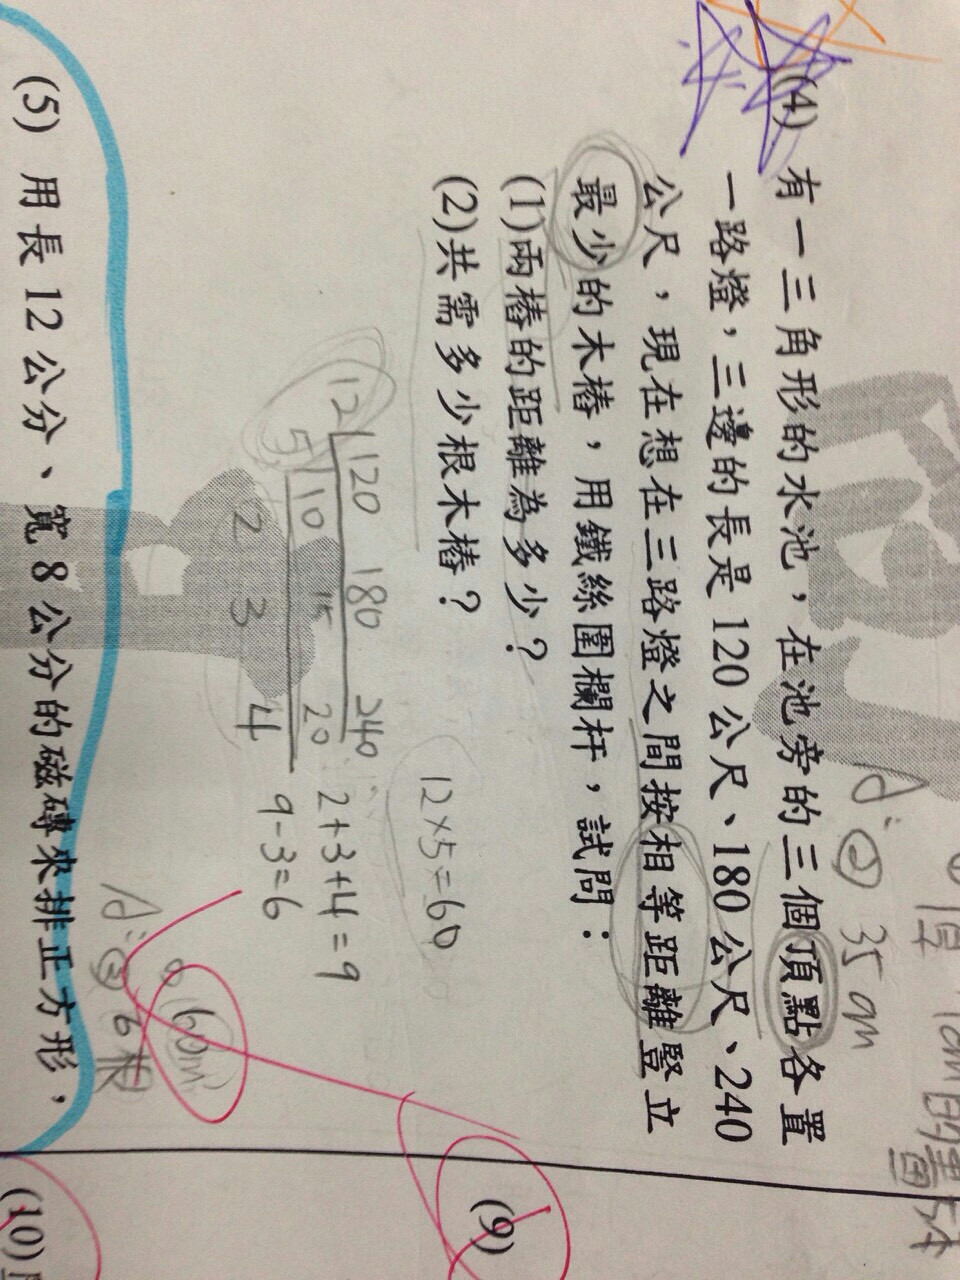 ① 35 cm
(4) 有一三角形的水池,在池旁的三個頂點各置
一路燈,三邊的長是 120 公尺、180 公尺、240
公尺,現在想在三路燈之間按相等距離豎立
最少的木樁,用鐵絲圍欄杆,試問:
(1)兩樁的距離為多少?
(2)共需多少根木樁?
12×5=60
12 120 180 240
5 10 15 20
2 3 4
2+3+4=9
9-3=6
60m
A: ② 6根
(5) 用長 12 公分、寬 8 公分的磁磚來排正方形,
(9)
(10)